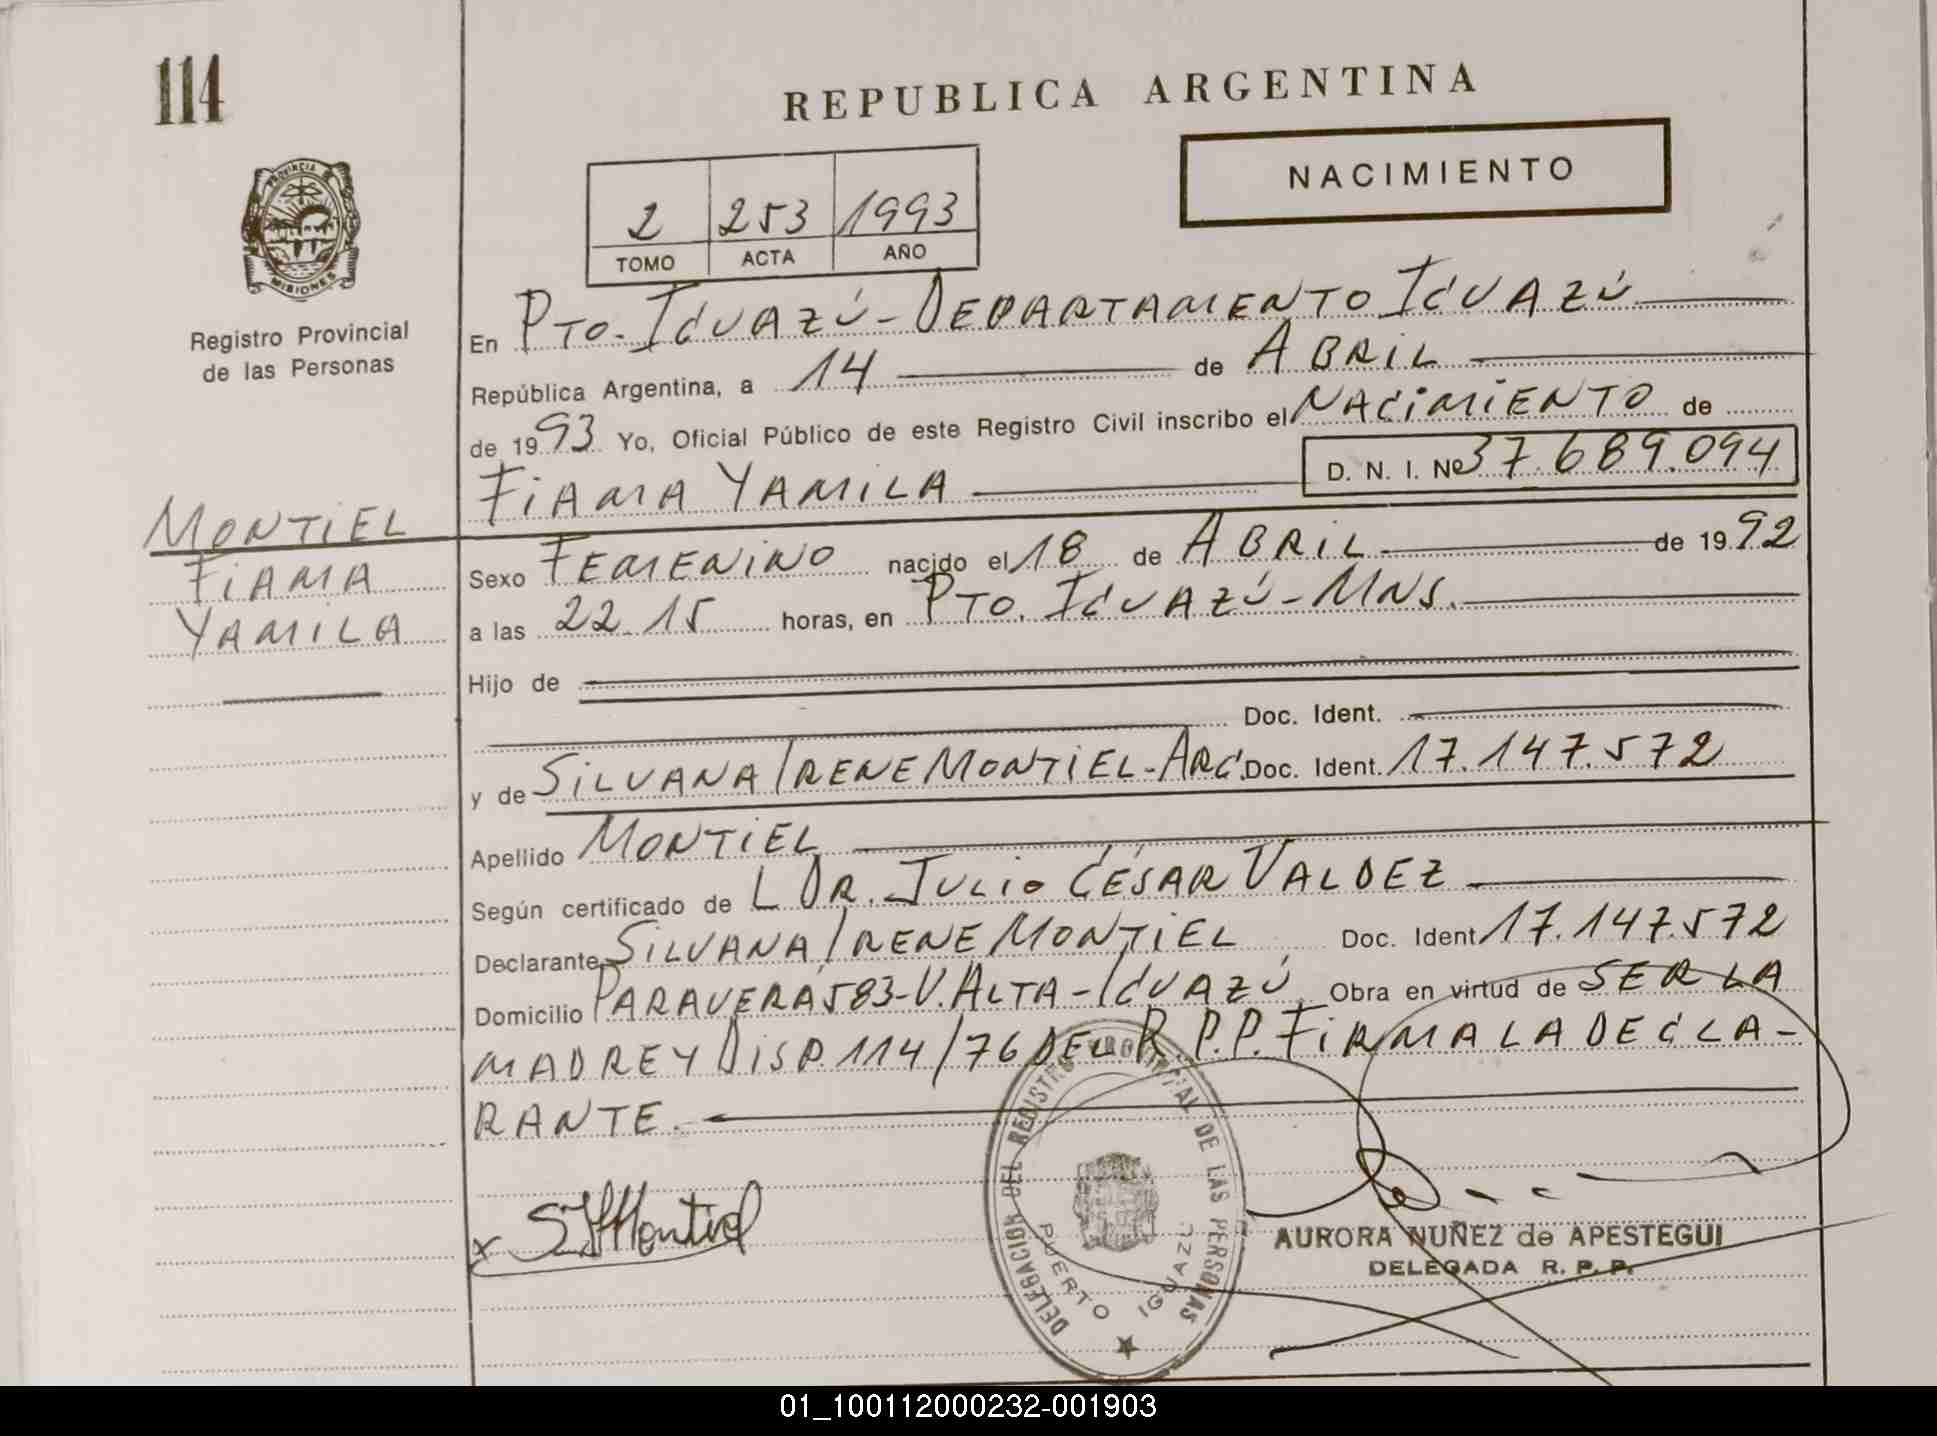 114
REPUBLICA ARGENTINA
NACIMIENTO
2 253 1993
TOMO ACTA AÑO
PROVINCIA
MISIONES
Registro Provincial
de las Personas
En PTO. IGUAZÚ - DEPARTAMENTO IGUAZÚ
República Argentina, a 14 de ABRIL
de 1993 Yo, Oficial Público de este Registro Civil inscribo el NACIMIENTO de
FIAMA YAMILA D. N. I. Nº 37.689.094
MONTIEL
FIAMA
YAMILA
Sexo FEMENINO nacido el 18 de ABRIL de 1992
a las 22.15 horas, en PTO. IGUAZÚ - MNS.
Hijo de
Doc. Ident.
y de SILVANA IRENE MONTIEL - ARG. Doc. Ident. 17.147.572
Apellido MONTIEL
Según certificado de L DR. JULIO CÉSAR VALDEZ
Declarante SILVANA IRENE MONTIEL Doc. Ident 17.147.572
Domicilio PARAVERA 583 - V. ALTA - IGUAZÚ. Obra en virtud de SER LA
MADRE Y DISP. 114/76 DEL R.P.P. FIRMA LA DECLA-
RANTE.
x S I Montiel
DELEGACION DEL REGISTRO PROVINCIAL DE LAS PERSONAS
PUERTO IGUAZU
AURORA NUÑEZ de APESTEGUI
DELEGADA R. P. P.
01_100112000232-001903